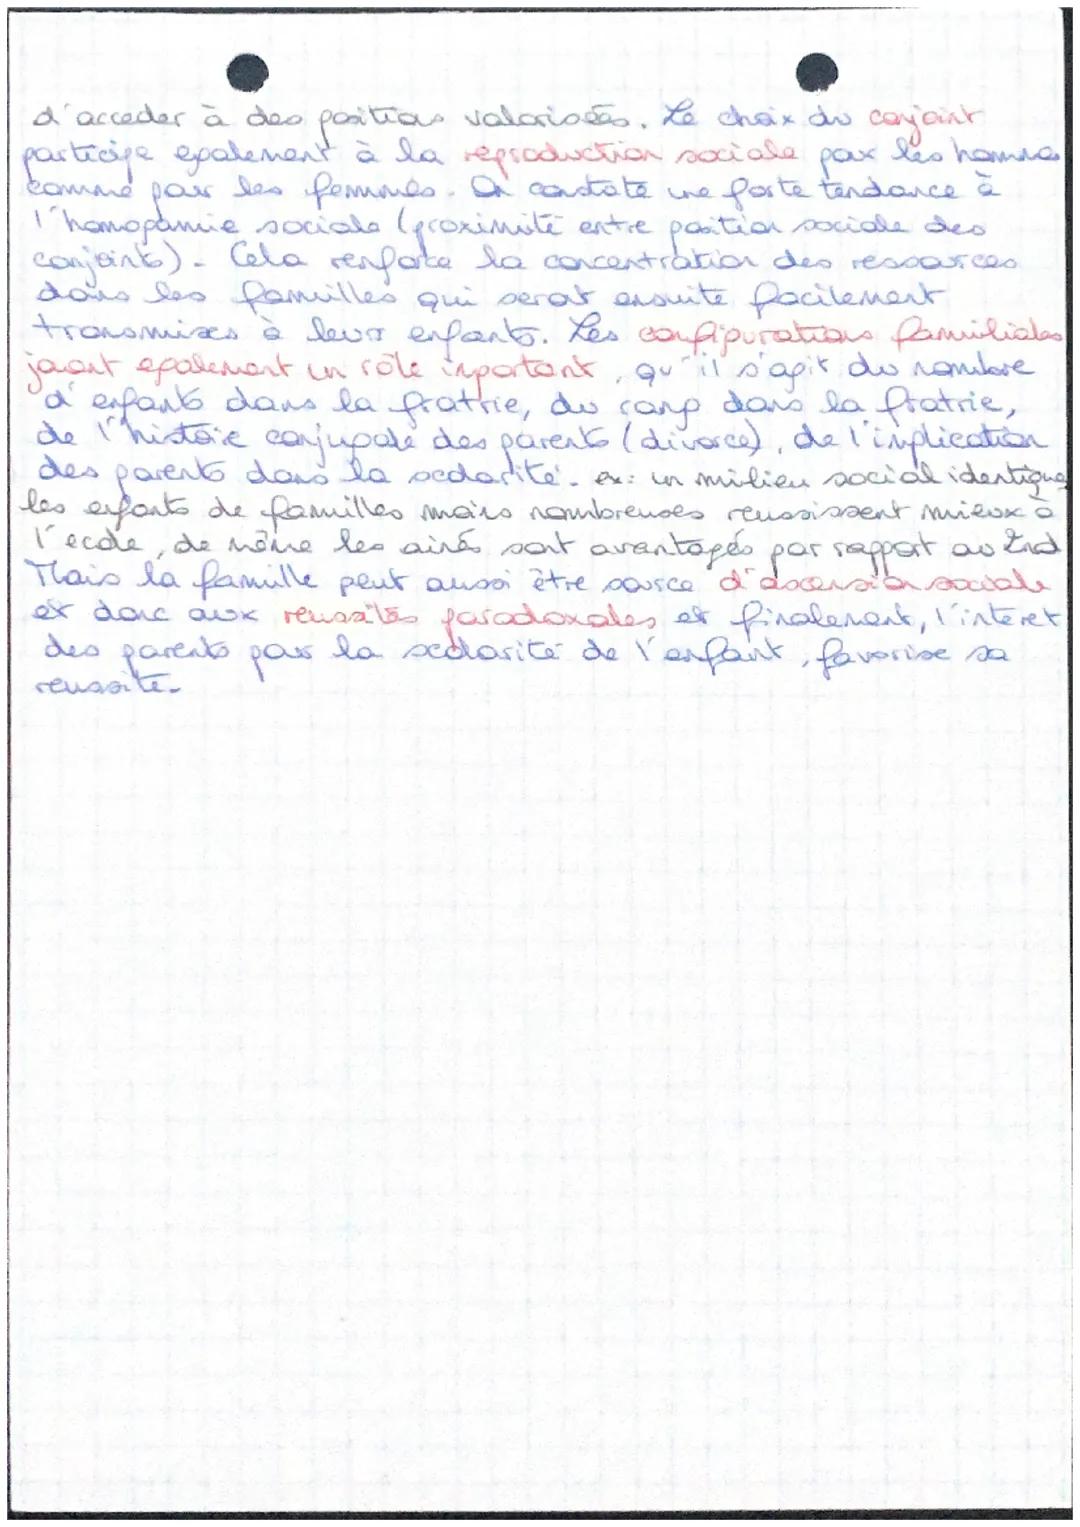 d'acceder à des positions valorisées. Le choix du conjoint
participe egalement à la reproduction sociale pour les hommes
comme pour les femmes. On constate une forte tendance à
l'homogamie sociale (proximité entre position sociale des
conjoints). Cela renforce la concentration des ressources
dans les familles qui seront ensuite facilement
transmises à leurs enfants. Les configurations familiales
jouent egalement un rôle important, qu'il s'agit du nombre
d'enfants dans la fratrie, du rang dans la fratrie,
de l'histoire conjugale des parents (divorce), de l'implication
des parents dans la scolarité. ex: un milieu social identique
les enfants de familles moins nombreuses reussissent mieux à
l'école, de même les ainés sont avantagés par rapport au 2nd
Mais la famille peut aussi être source d'ascension sociale
et donc aux reussites paradoxales et finalement, l'interet
des parents pour la scolarité de l'enfant, favorise sa
reussite.